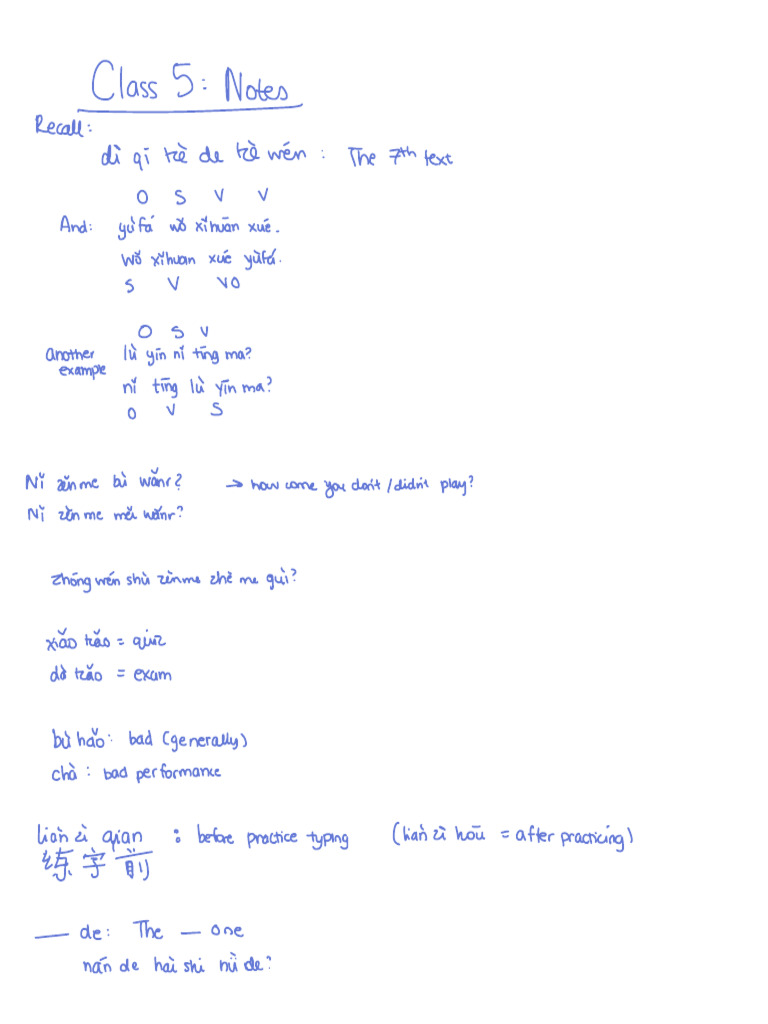 Class 5: Notes
Recall:
dì qī kè de kè wén : The 7th text
O S V V
And: yǔfǎ wǒ xǐhuān xué.
Wǒ xǐhuan xué yǔfǎ.
S V VO
O S V
another example lù yīn nǐ tīng ma?
nǐ tīng lù yīn ma?
O V S
Nǐ zěnme bù wánr? → how come you don't/didn't play?
Nǐ zěn me méi wánr?
Zhōngwén shū zěnme zhè me guì?
xiǎo kǎo = quiz
dà kǎo = exam
bù hǎo : bad (generally)
chà : bad performance
liàn zì qian : before practice typing (liàn zì hòu = after practicing)
练字前
— de : The — one
nán de hài shi nǚ de?